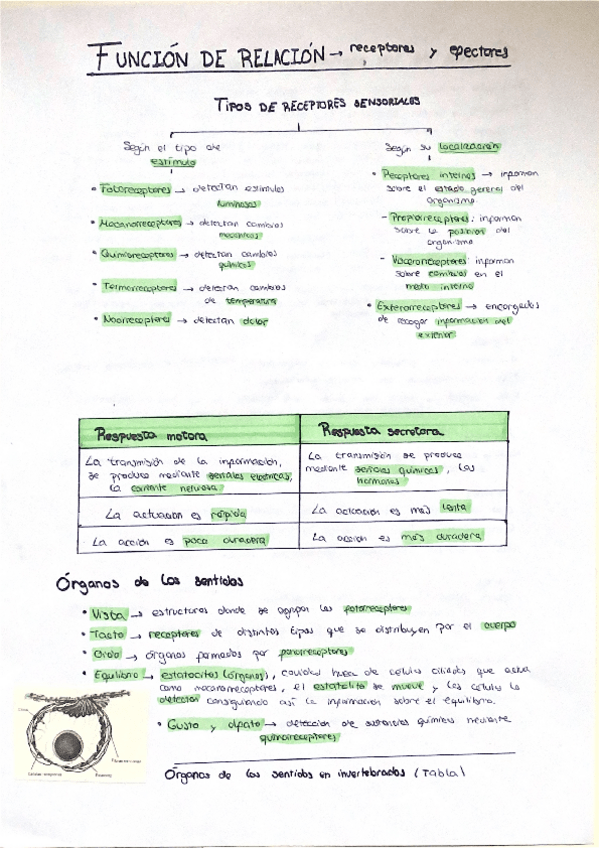 FUNCIÓN DE RELACIÓN → receptores y efectores
TIPOS DE RECEPTORES SENSORIALES
Según el tipo de
estímulo
• Fotorreceptores → detectan estímulos
luminosos
• Mecanorreceptores → detectan cambios
mecánicos
• Quimiorreceptores → detectan cambios
químicos
• Termorreceptores → detectan cambios
de temperatura
• Nocirreceptores → detectan dolor
Según su localización
• Receptores internos → informan
sobre el estado general del
organismo
- Propiorreceptores: informan
sobre la posición del
organismo
- Visceroreceptores: informan
sobre cambios en el
medio interno
• Exterorreceptores → encargados
de recoger información del
exterior
Respuesta motora
Respuesta secretora
La transmisión de la información,
se produce mediante señales eléctricas,
la corriente nerviosa
La transmisión se produce
mediante señales químicas, las
hormonas
La actuación es rápida
La actuación es más lenta
La acción es poco duradera
La acción es más duradera
Órganos de los sentidos
• Vista → estructuras donde se agrupan los fotorreceptores
• Tacto → receptores de distintos tipos que se distribuyen por el cuerpo
• Oído → órganos formados por fonorreceptores
• Equilibrio → estatocitos (órganos), cavidad hueca de células ciliadas que actúa
como mecanorreceptores, el estatolito se mueve y las células lo
detectan consiguiendo así la información sobre el equilibrio.
• Gusto y olfato → detección de sustancias químicas mediante
quimiorreceptores
Órganos de los sentidos en invertebrados (Tabla)